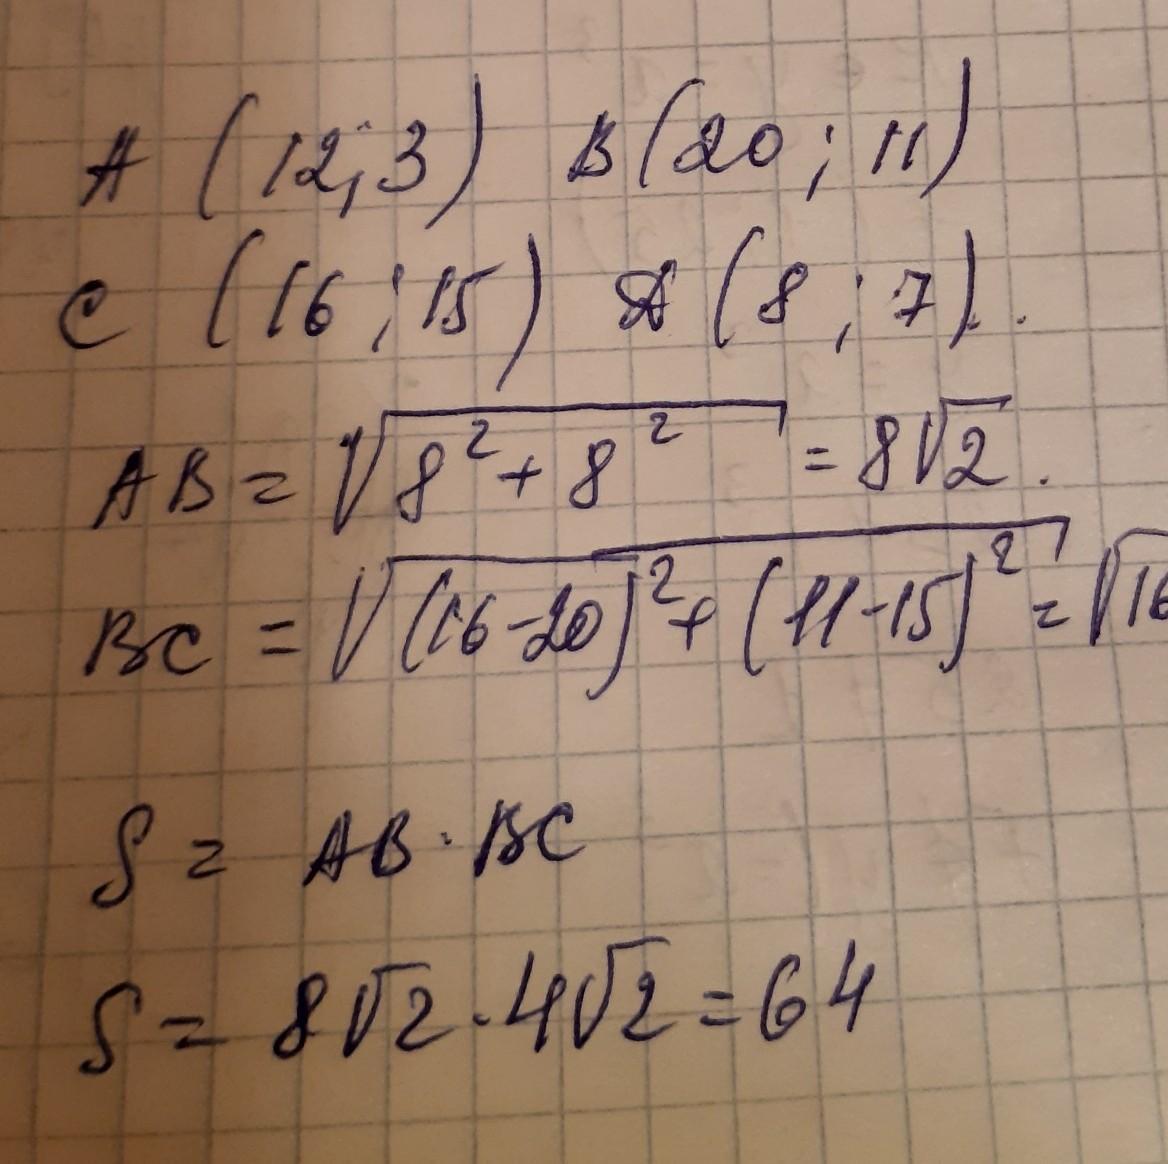 A (12; 3) B (20; 11)
C (16; 15) D (8; 7).
AB = √8² + 8² = 8√2.
BC = √(16-20)² + (11-15)² = √16
S = AB · BC
S = 8√2 · 4√2 = 64